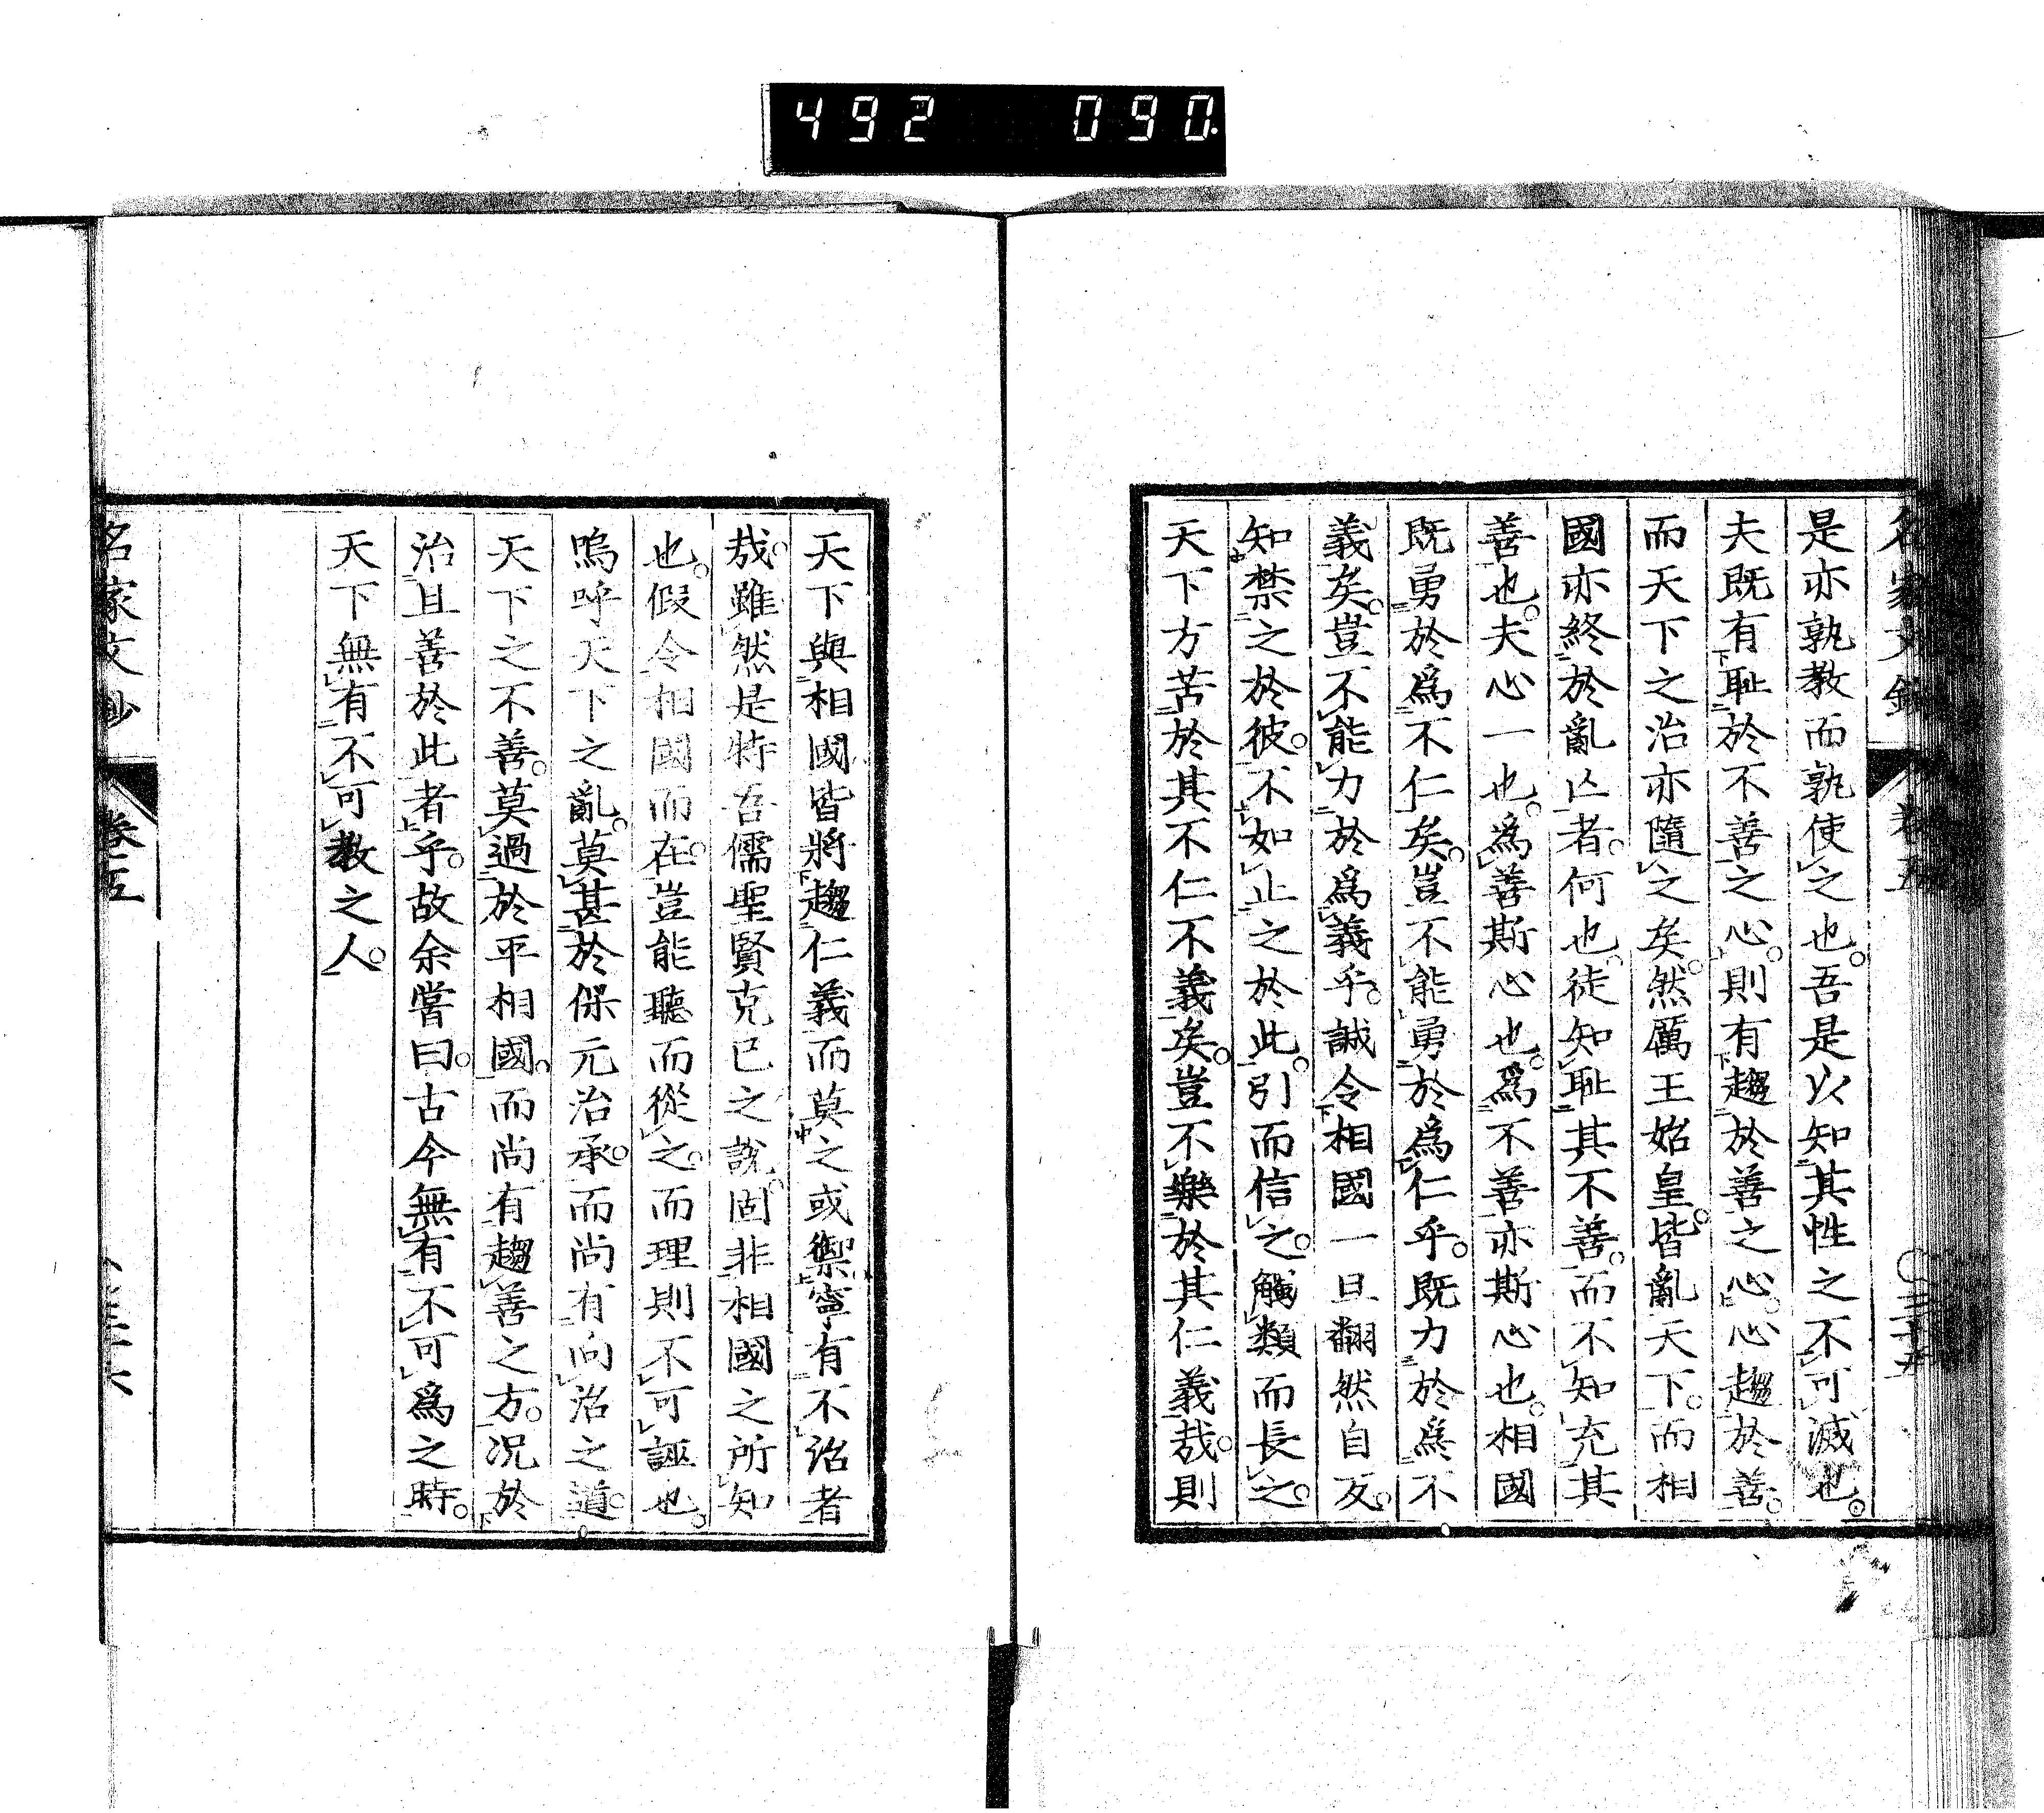 492 090.
是亦孰教而孰使之也。吾是以知其性之不可滅也。
夫既有恥於不善之心。則有趨於善之心。心趨於善。
而天下之治亦隨之矣。然厲王始皇。皆亂天下。而相
國亦終於亂亾者。何也。徒知恥其不善。而不知充其
善也。夫心一也。爲善斯心也。爲不善亦斯心也。相國
既勇於爲不仁矣。豈不能勇於爲仁乎。既力於爲不
義矣。豈不能力於爲義乎。誠令相國一旦翻然自反。
知禁之於彼。不如止之於此。引而信之。觸類而長之。
天下方苦於其不仁不義矣。豈不樂於其仁義哉。則
天下與相國皆將趨仁義而莫之或禦。寧有不治者
哉。雖然是特吾儒聖賢克已之說。固非相國之所知
也。假令相國而在。豈能聽而從之。而理則不可誣也。
嗚呼天下之亂。莫甚於保元治承。而尚有向治之道。
天下之不善。莫過於平相國。而尚有趨善之方。况於
治且善於此者乎。故余嘗曰。古今無有不可爲之時。
天下無有不可教之人。
名家文鈔
卷五